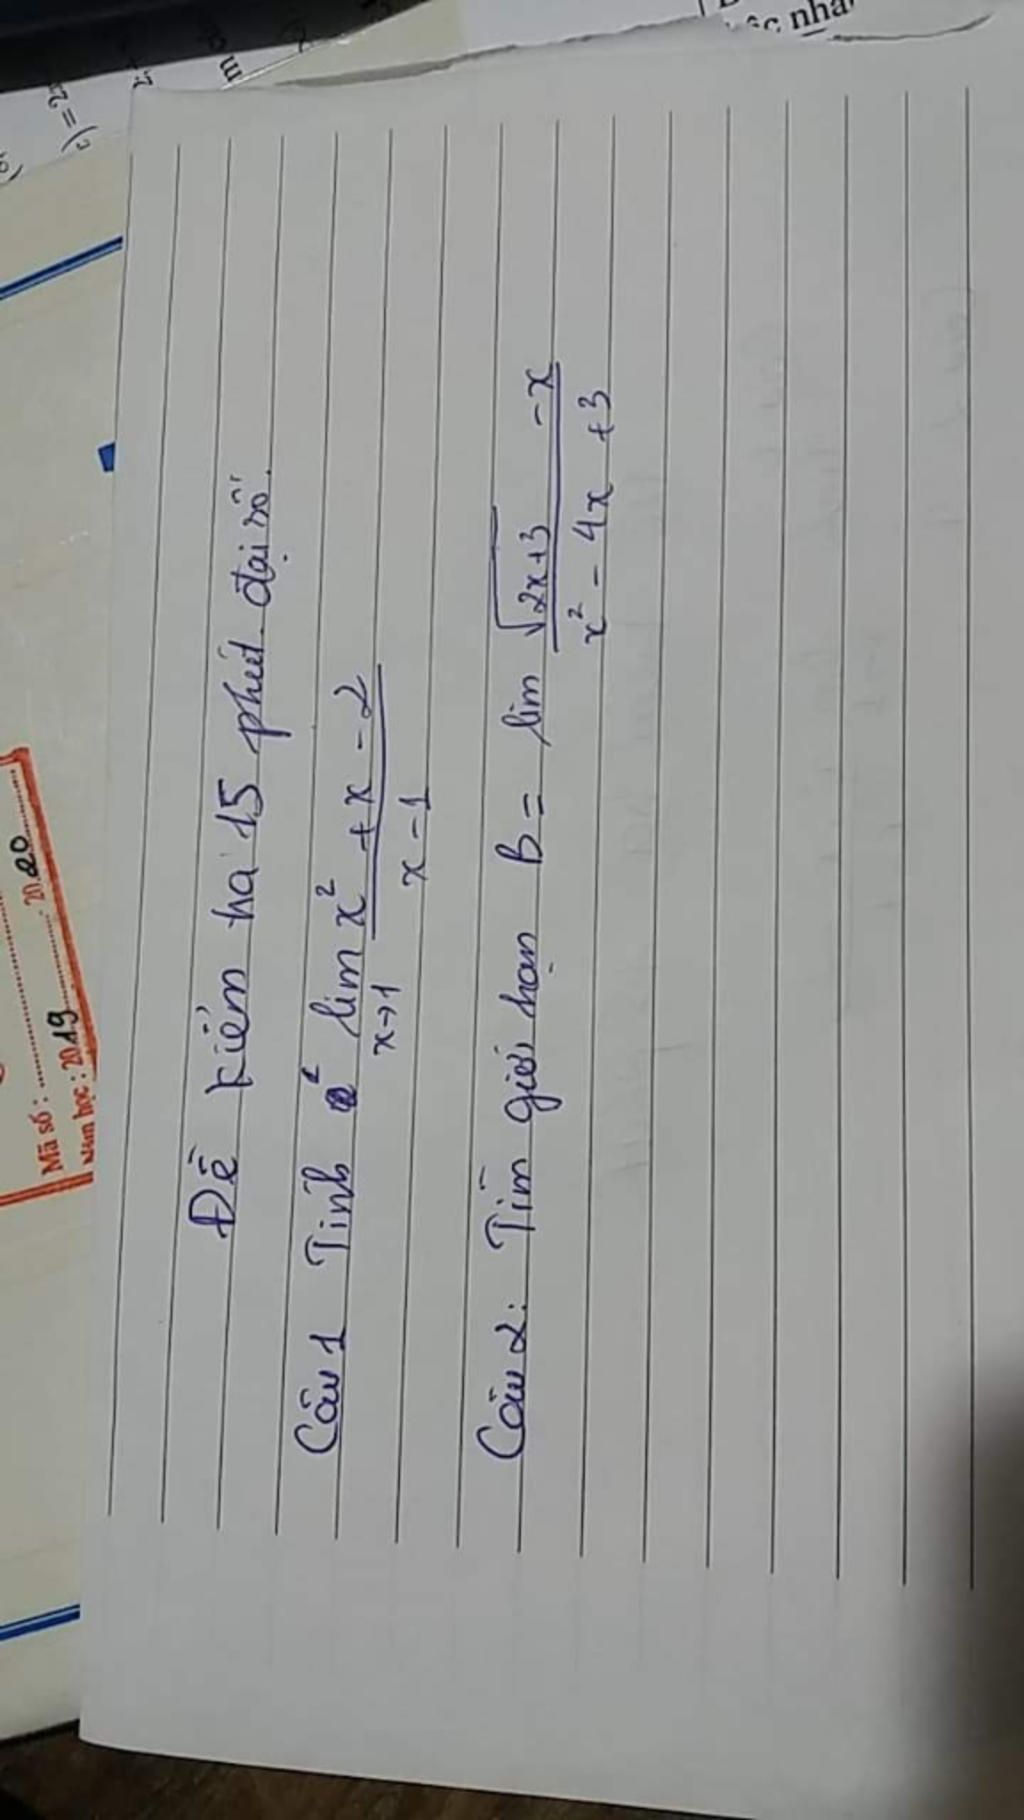 Mã số :
Năm học : 2019 2020
Đề kiểm tra 15 phút đại số.
Câu 1 Tính lim x² + x - 2
x→1 x - 1
Câu 2: Tìm giới hạn B = lim √2x+3 - x
x² - 4x + 3